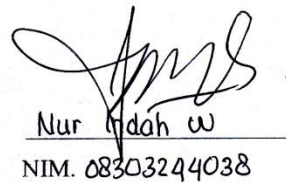 Nur Indah W
NIM. 08303244038